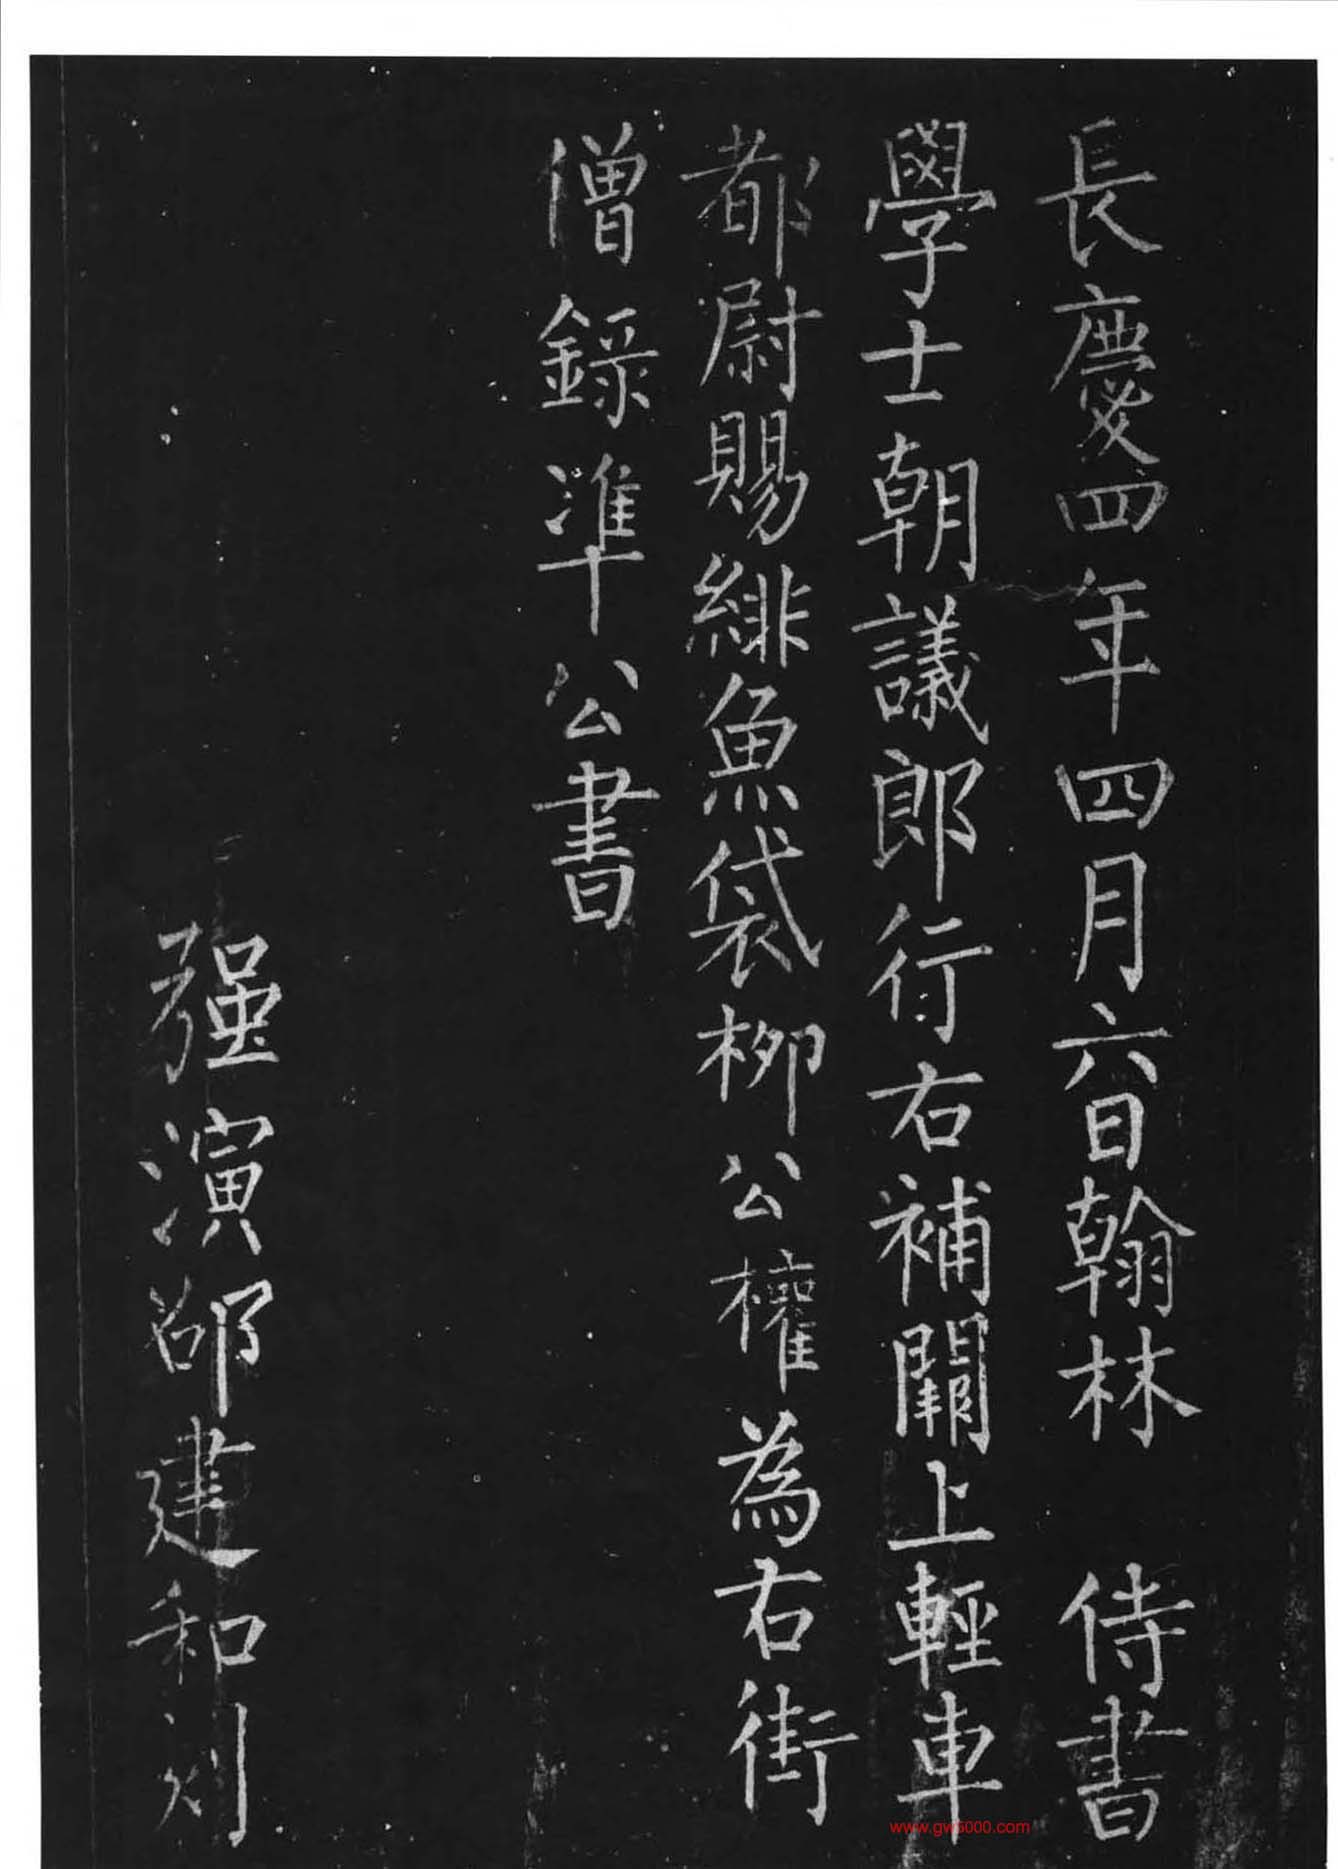 長慶四年四月六日翰林 侍書
學士朝議郎行右補闕上輕車
都尉賜緋魚袋柳公權為右街
僧錄準公書
强演邵建和刻
www.gw5000.com